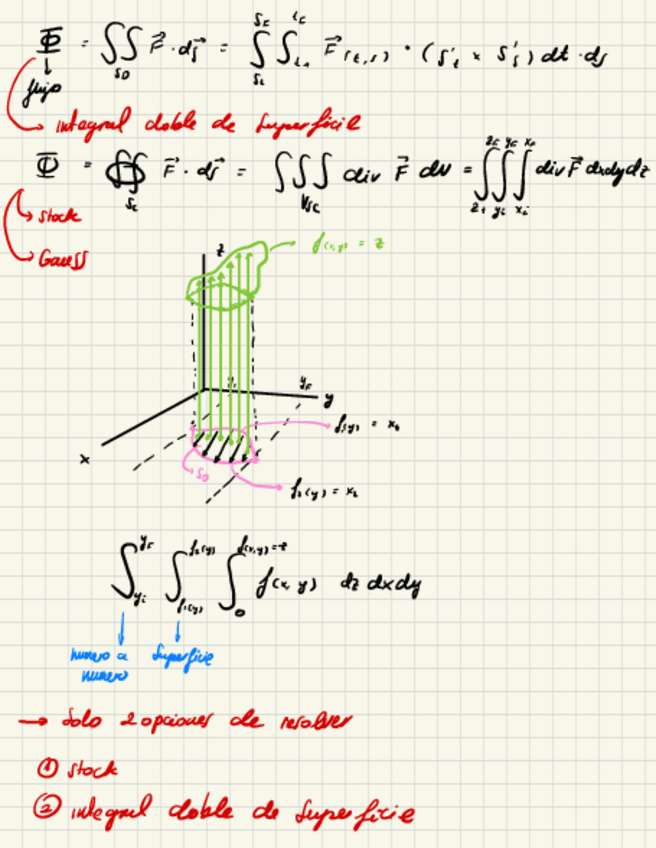 Φ = ∬_{S_D} F⃗ · ds⃗ = ∫_{s_i}^{s_f} ∫_{t_i}^{t_f} F⃗(t,s) · (S'_t × S'_s) dt · ds
flujo
integral doble de Superficie
Φ = ∯_{S_c} F⃗ · ds⃗ = ∭_{V_{SC}} div F⃗ dv = ∫_{z_i}^{z_f} ∫_{y_i}^{y_f} ∫_{x_i}^{x_f} div F⃗ dxdydz
stock
Gauss
z
f(x,y) = z
y_i y_f
y
f(y) = x_1
x
S_D
f_2(y) = x_2
∫_{y_i}^{y_f} ∫_{f_1(y)}^{f_2(y)} ∫_0^{f(x,y)=z} f(x,y) dz dxdy
numero a Superficie
numero
→ Solo 2 opciones de resolver
① stock
② integral doble de Superficie